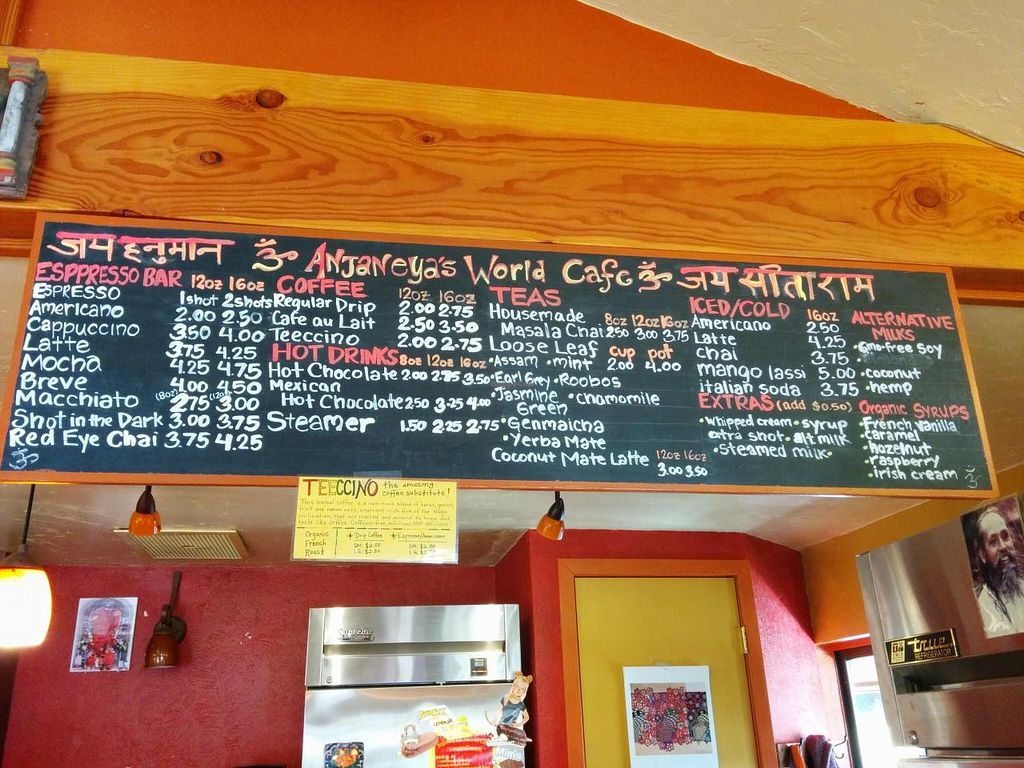 जय हनुमान ॐ ANJANEYA'S WORLD CAFE ॐ जय सीताराम
ESPPRESSO BAR 12oz 16oz
ESPRESSO 1shot 2shots
Americano 2.00 2.50
Cappuccino 3.50 4.00
Latte 3.75 4.25
Mocha 4.25 4.75
Breve 4.00 4.50
Macchiato (8oz) 2.75 (12oz) 3.00
Shot in the Dark 3.00 3.75
Red Eye Chai 3.75 4.25
ॐ
COFFEE 12oz 16oz
Regular Drip 2.00 2.75
Cafe au Lait 2.50 3.50
Teeccino 2.00 2.75
HOT DRINKS 8oz 12oz 16oz
Hot Chocolate 2.00 2.75 3.50
Mexican
Hot Chocolate 2.50 3.25 4.00
Steamer 1.50 2.25 2.75
TEAS
Housemade 8oz 12oz 16oz
Masala Chai 2.50 3.00 3.75
Loose Leaf cup pot
•Assam •mint 2.00 4.00
•Earl Grey •Roobos
•Jasmine •Chamomile
Green
•Genmaicha
•Yerba Mate
Coconut Mate Latte 12oz 16oz
3.00 3.50
ICED/COLD 16oz
Americano 2.50
Latte 4.25
chai 3.75
mango lassi 5.00
italian soda 3.75
EXTRAS (add $0.50)
•whipped cream •syrup
extra shot •alt milk
•steamed milk
ALTERNATIVE
MILKS
•gmo-free soy
•coconut
•hemp
Organic SYRUPS
•French vanilla
•caramel
•hazelnut
•raspberry
•irish cream
ॐ
TEECCINO the amazing
coffee substitute!
Organic
French
Roast
•Drip Coffee
SM. $2.00
LG. $2.50
true
REFRIGERATOR